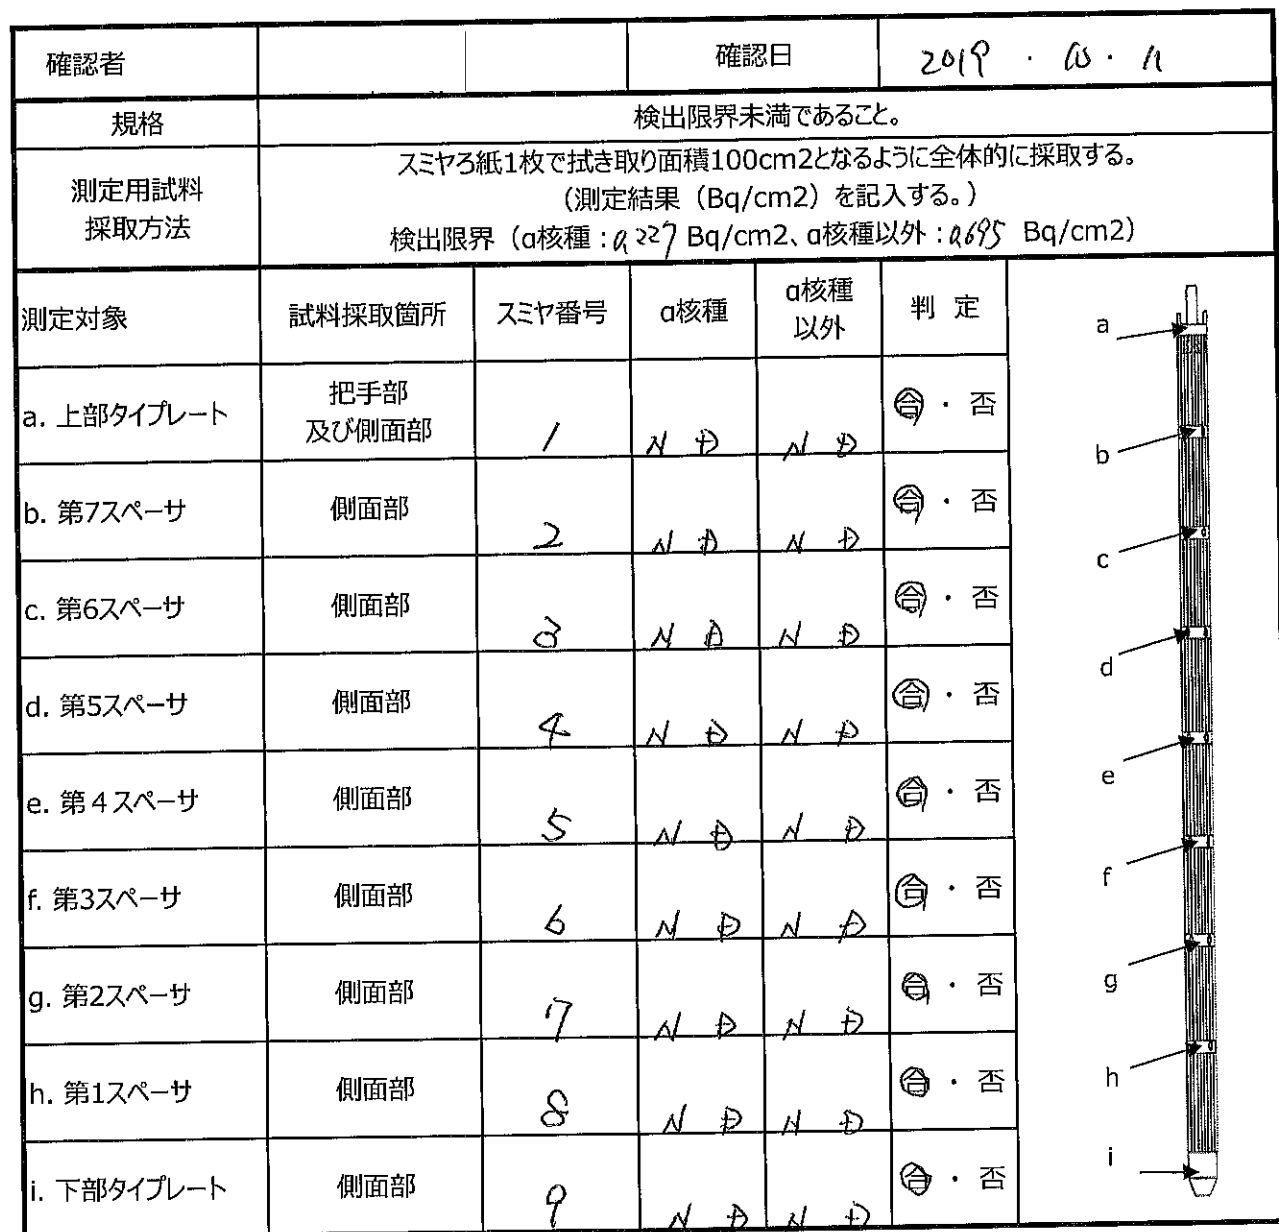 確認者 確認日 2019 ・ 10 ・ 11
規格 検出限界未満であること。
測定用試料
採取方法
スミヤろ紙1枚で拭き取り面積100cm2となるように全体的に採取する。
（測定結果（Bq/cm2）を記入する。）
検出限界（α核種：0.227 Bq/cm2、α核種以外：0.695 Bq/cm2）
測定対象 試料採取箇所 スミヤ番号 α核種 α核種以外 判 定
a. 上部タイプレート 把手部及び側面部 1 ND ND 合 ・ 否
b. 第7スペーサ 側面部 2 ND ND 合 ・ 否
c. 第6スペーサ 側面部 3 ND ND 合 ・ 否
d. 第5スペーサ 側面部 4 ND ND 合 ・ 否
e. 第４スペーサ 側面部 5 ND ND 合 ・ 否
f. 第3スペーサ 側面部 6 ND ND 合 ・ 否
g. 第2スペーサ 側面部 7 ND ND 合 ・ 否
h. 第1スペーサ 側面部 8 ND ND 合 ・ 否
i. 下部タイプレート 側面部 9 ND ND 合 ・ 否
a
b
c
d
e
f
g
h
i